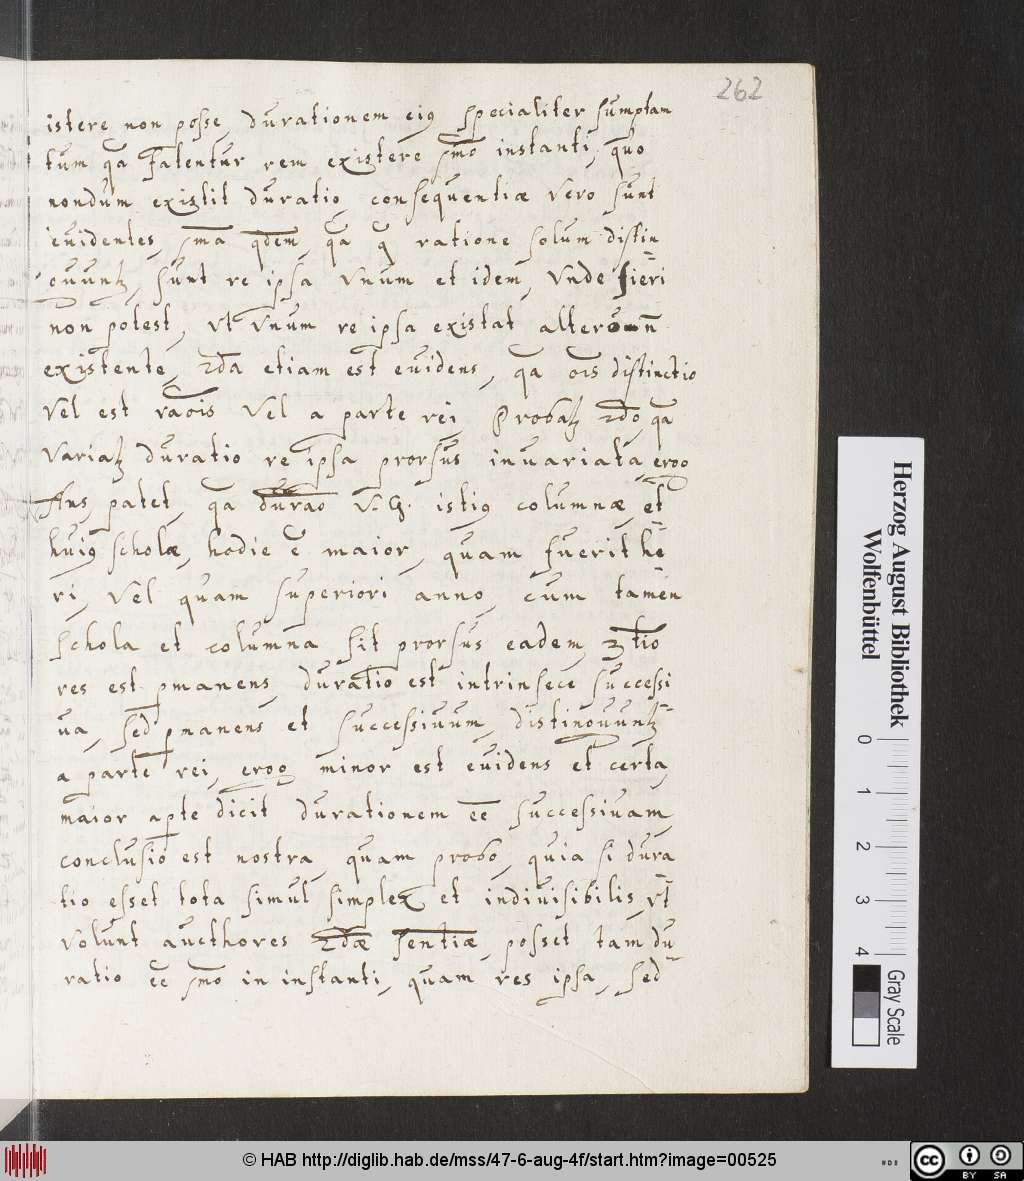 262
istere non posse, durationem eiꝰ specialiter sumptam
tum q̃a Fatentur rem existere p̃mo instanti, quo
nondum existit duratio, consequentiæ vero sunt
euidentes, p̃ma q̃dem, q̃a q̃ ratione solum distin
guuntꝛ, sunt re ipsa vnum et idem, vnde fieri
non potest, vt vnum re ipsa existat altero
existente, 2da etiam est euidens, q̃a õis distinctio
vel est rãois vel a parte rei Probatꝛ 2do, q̃a
variatꝛ duratio re ipsa prorsus inuariata ergo
Ans patet, q̃a durão v. g. istiꝰ columnæ, et
huiꝰ scholæ, hodie ẽ maior, quam fuerit he
ri, vel quam superiori anno, cum tamen
schola et columna sit prorsus eadem, 3tio
res est pmanens, duratio est intrinsece successi
ua, sed pmanens et successiuum, distinguuntꝛ
a parte rei, ergo minor est euidens et certa,
maior apte dicit durationem eẽ successiuam,
conclusio est nostra, quam probo, quia si dura
tio esset tota simul simplex et indiuisibilis, vt
volunt aucthores 2dæ sentiæ, posset tam du
ratio eẽ p̃mo in instanti, quam res ipsa, sed
Herzog August Bibliothek
Wolfenbüttel
0 1 2 3 4
Gray Scale
© HAB http://diglib.hab.de/mss/47-6-aug-4f/start.htm?image=00525
cc BY SA